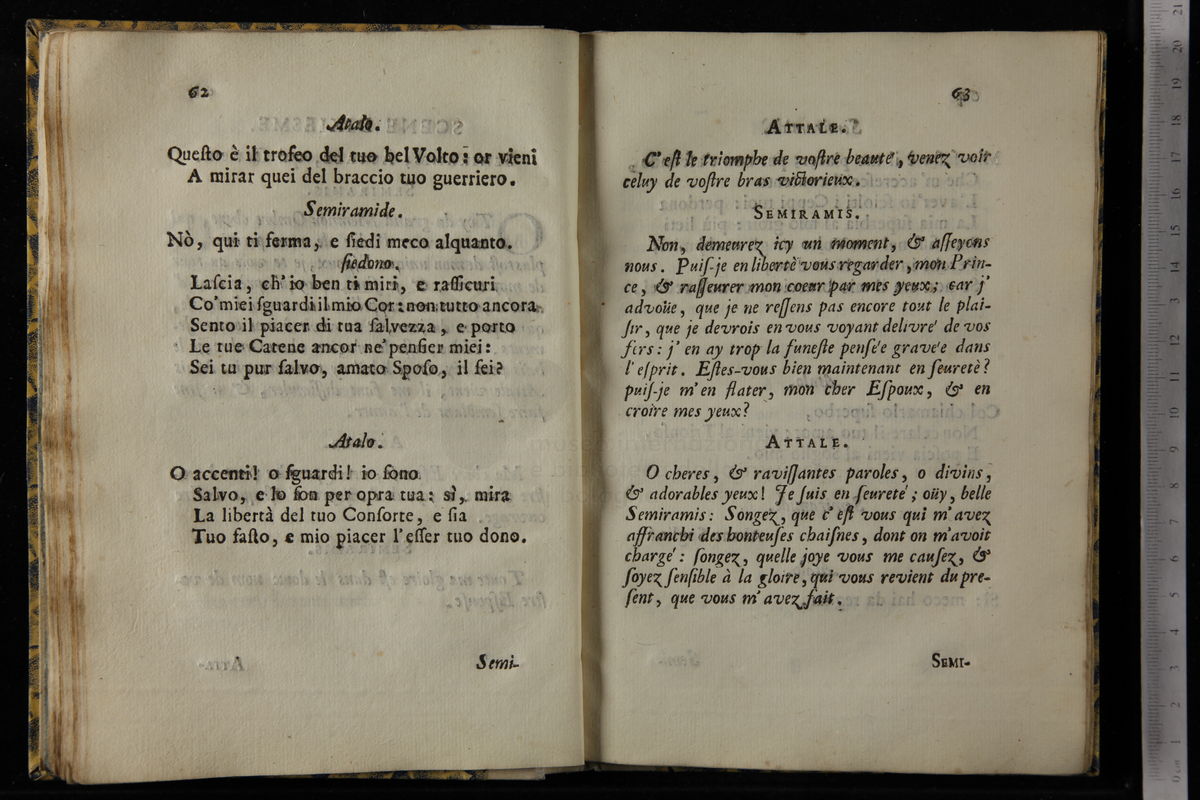 62
Atalo.
Queſto è il trofeo del tuo bel Volto: or vieni
A mirar quei del braccio tuo guerriero.
Semiramide.
Nò, qui ti ferma, e ſiedi meco alquanto.
ſiedono.
Laſcia, ch' io ben ti miri, e rafſicuri
Co' miei ſguardi il mio Cor: non tutto ancora
Sento il piacer di tua ſalvezza, e porto
Le tue Catene ancor ne' penſier miei:
Sei tu pur ſalvo, amato Spoſo, il ſei?
Atalo.
O accenti! o ſguardi! io ſono
Salvo, e lo ſon per opra tua: sì, mira
La libertà del tuo Conſorte, e ſia
Tuo faſto, e mio piacer l' eſſer tuo dono.
Semi-
63
ATTALE.
C' eſt le triomphe de voſtre beauté, venez voir
celuy de voſtre bras victorieux.
SEMIRAMIS.
Non, demeurez icy un moment, & aſſeyons
nous. Puiſ-je en libertè vous regarder, mon Prin-
ce, & raſſeurer mon coeur par mes yeux; car j'
advoüe, que je ne reſſens pas encore tout le plai-
ſir, que je devrois en vous voyant delivré de vos
fers: j' en ay trop la funeſte penſée gravée dans
l' eſprit. Eſtes-vous bien maintenant en ſeuretè?
puiſ-je m' en flater, mon cher Eſpoux, & en
croire mes yeux?
ATTALE.
O cheres, & raviſſantes paroles, o divins,
& adorables yeux! Je ſuis en ſeureté; oüy, belle
Semiramis: Songez, que c' eſt vous qui m' avez
affranchi des honteuſes chaiſnes, dont on m' avoit
chargé: ſongez, quelle joye vous me cauſez, &
ſoyez ſenſible à la gloire, qui vous revient du pre-
ſent, que vous m' avez fait.
SEMI-